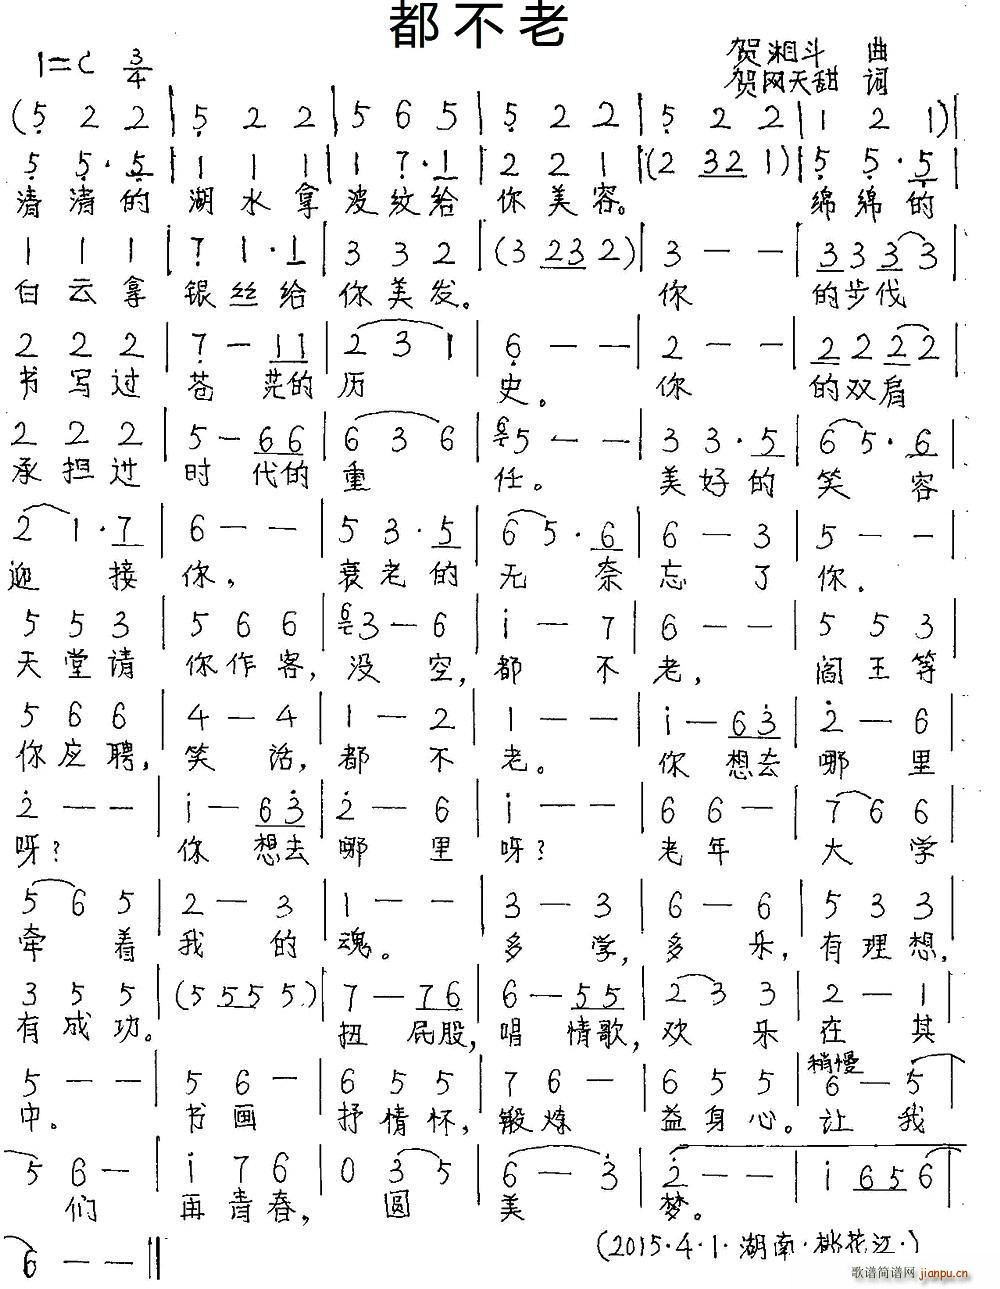 都不老
1=C 3/4
贺湘斗 曲
贺网天甜 词
(5 2 2 | 5 2 2 | 5 6 5 | 5 2 2 | 5 2 2 | 1 2 1)|
5 5·5 | 1 1 1 | 1 7·1 | 2 2 1 |(2 32 1)| 5 5·5
清清的 湖水拿 波纹给 你美容。 绵绵的
1 1 1 | 7 1·1 | 3 3 2 |(3 232)| 3 — — | 3 3 3 3
白云拿 银丝给 你美发。 你 的步伐
2 2 2 | 7 — 11 | 2 3 1 | 6 — — | 2 — — | 2 2 2 2
书写过 苍茫的 历 史。 你 的双肩
2 2 2 | 5 — 66 | 6 3 6 | 6 5 — — | 3 3·5 | 6 5·6
承担过 时代的 重 任。 美好的 笑容
2 1·7 | 6 — — | 5 3·5 | 6 5·6 | 6 — 3 | 5 — —
迎接 你, 衰老的 无奈 忘了 你.
5 5 3 | 5 6 6 | 6 3 — 6 | i — 7 | 6 — — | 5 5 3
天堂请 你作客, 没空, 都不 老, 阎王等
5 6 6 | 4 — 4 | 1 — 2 | 1 — — | i — 63 | 2 — 6
你应聘, 笑话, 都不 老。 你想去 哪里
2 — — | i — 63 | 2 — 6 | i — — | 6 6 — | 7 6 6
呀? 你想去 哪里 呀? 老年 大学
5 6 5 | 2 — 3 | 1 — — | 3 — 3 | 6 — 6 | 5 3 3
牵着 我的 魂。 多学, 多乐, 有理想,
3 5 5 |(5 55 5.)| 7 — 76 | 6 — 55 | 2 3 3 | 2 — 1
有成功。 扭屁股, 唱情歌, 欢乐 在其
稍慢
5 — — | 5 6 — | 6 5 5 | 7 6 — | 6 5 5 | 6 — 5
中。 书画 抒情怀, 锻炼 益身心。 让我
5 6 — | i 7 6 | 0 3 5 | 6 — 3 | 2 — — | i 656
们 再青春, 圆 美 梦。
6 — — ‖
(2015·4·1·湖南·桃花江·)
歌谱简谱网 jianpu.cn